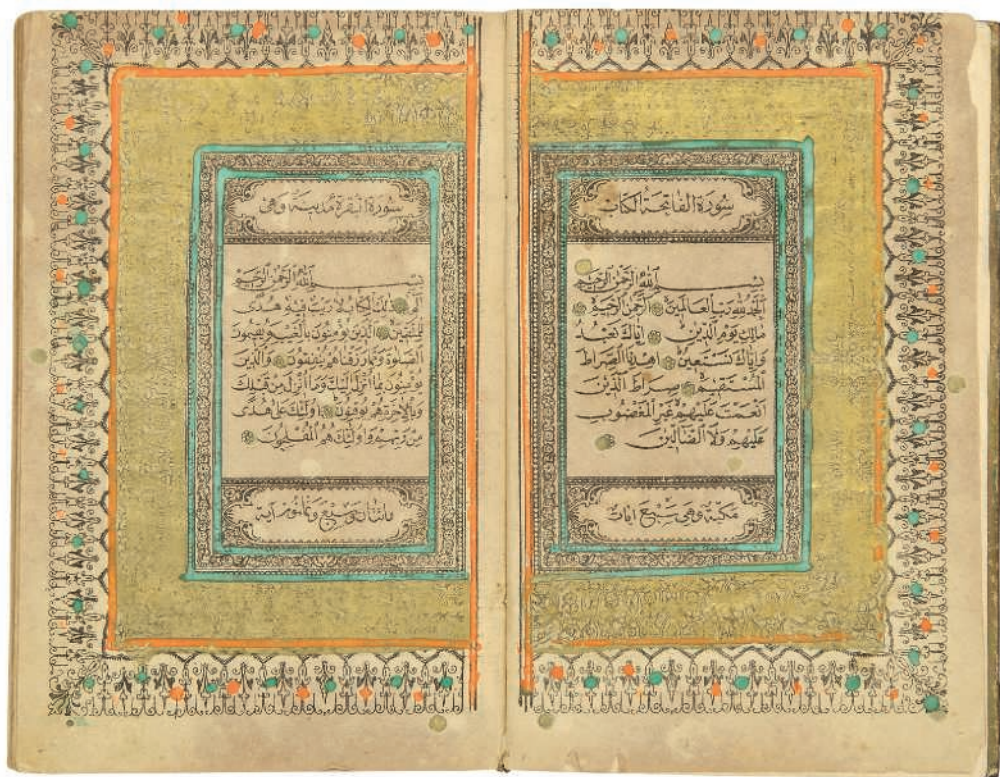 سُورَةُ الفَاتِحَةِ الكِتَابِ
بِسْمِ اللّٰهِ الرَّحْمٰنِ الرَّحِيمِ
اَلْحَمْدُ لِلّٰهِ رَبِّ الْعَالَمِينَ ۞ اَلرَّحْمٰنِ الرَّحِيمِ ۞
مَالِكِ يَوْمِ الدِّينِ ۞ اِيَّاكَ نَعْبُدُ
وَاِيَّاكَ نَسْتَعِينُ ۞ اِهْدِنَا الصِّرَاطَ
الْمُسْتَقِيمَ ۞ صِرَاطَ الَّذِينَ
اَنْعَمْتَ عَلَيْهِمْ غَيْرِ الْمَغْضُوبِ
عَلَيْهِمْ وَلَا الضَّالِّينَ ۞
مَكِّيَّةٌ وَهِيَ سَبْعُ اٰيَاتٍ
سُورَةُ الْبَقَرَةِ مَدَنِيَّةٌ وَهِيَ
بِسْمِ اللّٰهِ الرَّحْمٰنِ الرَّحِيمِ
الٓمٓ ۞ ذٰلِكَ الْكِتَابُ لَا رَيْبَ فِيهِ هُدًى
لِلْمُتَّقِينَ ۞ اَلَّذِينَ يُؤْمِنُونَ بِالْغَيْبِ وَيُقِيمُونَ
الصَّلٰوةَ وَمِمَّا رَزَقْنَاهُمْ يُنْفِقُونَ ۞ وَالَّذِينَ
يُؤْمِنُونَ بِمَا اُنْزِلَ اِلَيْكَ وَمَا اُنْزِلَ مِنْ قَبْلِكَ
وَبِالْاٰخِرَةِ هُمْ يُوقِنُونَ ۞ اُولٰئِكَ عَلٰى هُدًى
مِنْ رَبِّهِمْ وَاُولٰئِكَ هُمُ الْمُفْلِحُونَ ۞
مِائَتَانِ وَسَبْعٌ وَثَمَانُونَ اٰيَة